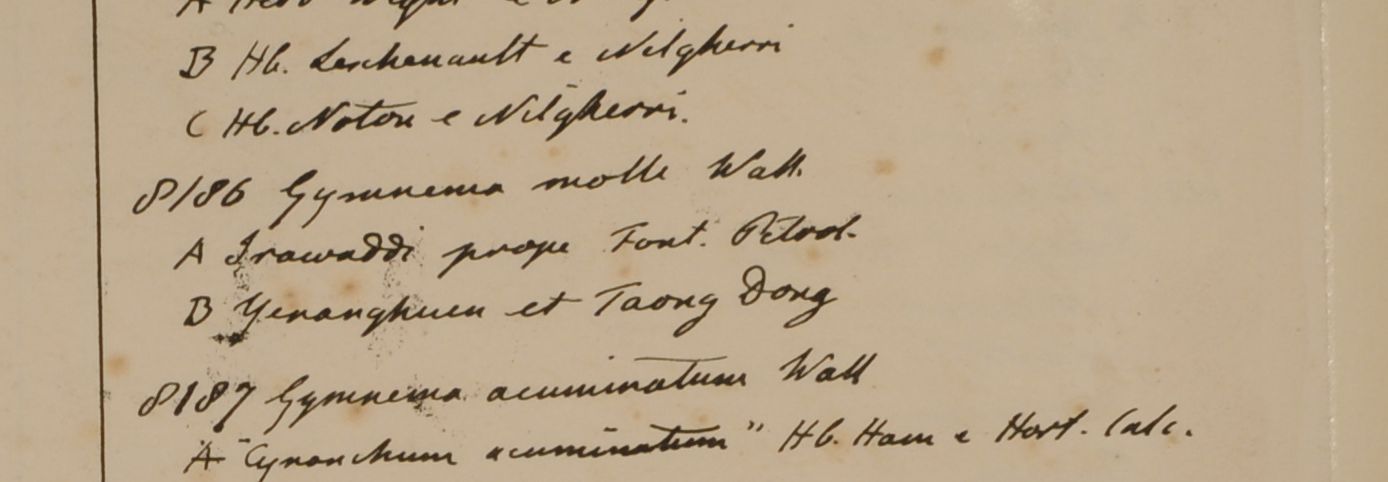 B Hb. Leschenault e Nilgherri
C Hb. Noton e Nilgherri.
8186 Gymnema molle Wall.
A Irawaddi prope Font. Petrol.
B Yenanghuen et Taong Dong
8187 Gymnema acuminatum Wall
A "Cynanchum acuminatum" Hb. Ham e Hort. Calc.